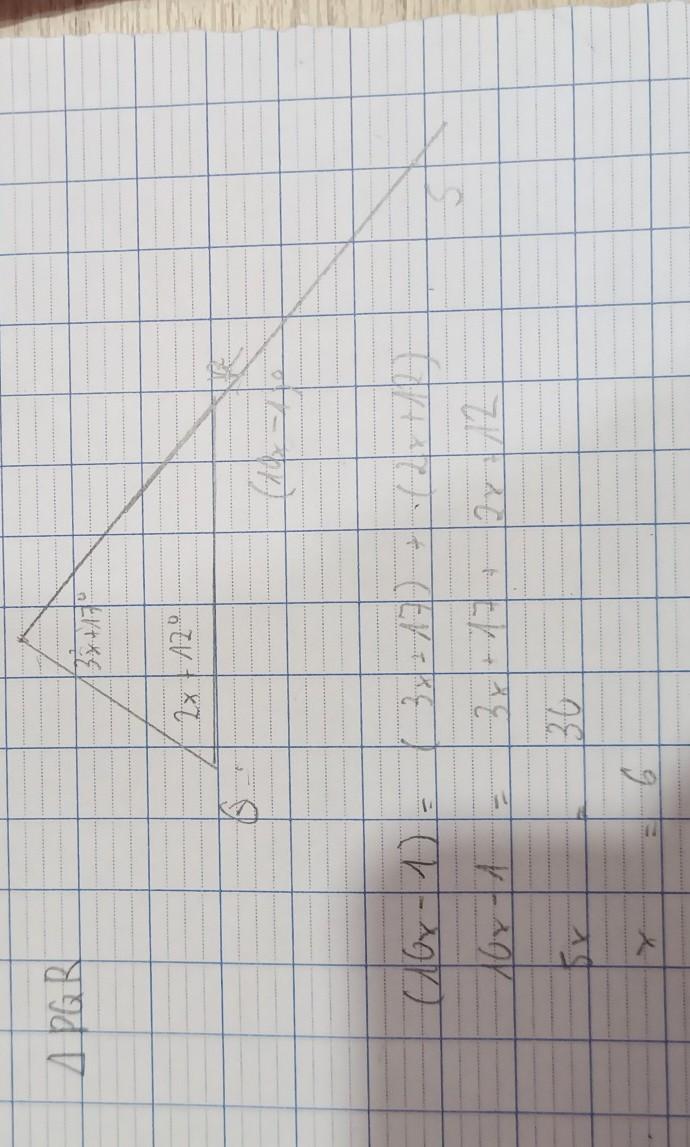 Δ PQR
3x+17°
2x+12°
Q
R
(10x-1)°
S
(10x-1) = (3x+17) + (2x+12)
10x-1 = 3x+17+2x+12
5x = 30
x = 6